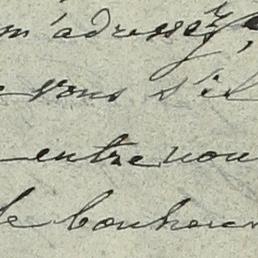 m'adressez
vous s'il
entre nou
de bonheur